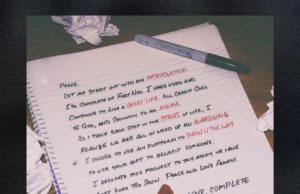 PEACE.
LET ME START OUT WITH MY INTRODUCTION.
I'M COMPLETE OF FORT NOX. I HAVE LIVED AND
CONTINUE TO LIVE A GOOD LIFE. ALL CREDIT GOES
TO GOD, AND BROUGHT TO MY MAMA.
AS I TAKE EACH STEP IN THE STAIRS OF LIFE, I
REALIZE WE ARE ALL IN NEED OF AN AWAKENING.
I CHOOSE TO USE MY PLATFORM TO SHOW U THE WAY
TO USE YOUR GIFT TO BENEFIT SOMEONE.
I DEDICATE THIS PROJECT TO THIS WHAT WE HAVE
LOVE PEACE AND LOVE ALWAYS
LOVE, COMPLETE